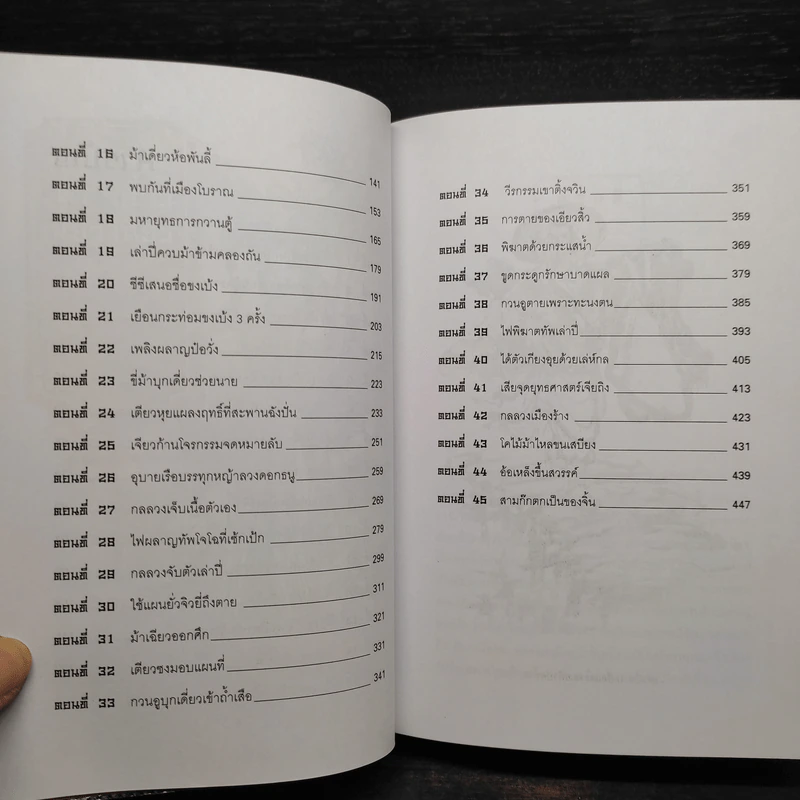 ตอนที่ 16 ม้าเดียวห้อพันลี้ 141
ตอนที่ 17 พบกันที่เมืองโบราณ 153
ตอนที่ 18 มหายุทธการกวานตู้ 165
ตอนที่ 19 เล่าปี่ควบม้าข้ามคลองถัน 179
ตอนที่ 20 ชีซีเสนอชื่อขงเบ้ง 191
ตอนที่ 21 เยือนกระท่อมขงเบ้ง 3 ครั้ง 203
ตอนที่ 22 เพลิงผลาญป๋อวั่ง 215
ตอนที่ 23 ขี่ม้าบุกเดี่ยวช่วยนาย 223
ตอนที่ 24 เตียวหุยแผลงฤทธิ์ที่สะพานฉังปั่น 233
ตอนที่ 25 เจียวก้านโจรกรรมจดหมายลับ 251
ตอนที่ 26 อุบายเรือบรรทุกหญ้าลวงดอกธนู 259
ตอนที่ 27 กลลวงเจ็บเนื้อตัวเอง 269
ตอนที่ 28 ไฟผลาญทัพโจโฉที่เซ้กเป้ก 279
ตอนที่ 29 กลลวงจับตัวเล่าปี่ 299
ตอนที่ 30 ใช้แผนยั่วจิวยี่ถึงตาย 311
ตอนที่ 31 ม้าเฉียวออกศึก 321
ตอนที่ 32 เตียวซงมอบแผนที่ 331
ตอนที่ 33 กวนอูบุกเดี่ยวเข้าถ้ำเสือ 341
ตอนที่ 34 วีรกรรมเขาติ้งจวิน 351
ตอนที่ 35 การตายของเอียวสิ้ว 359
ตอนที่ 36 พิฆาตด้วยกระแสน้ำ 369
ตอนที่ 37 ขูดกระดูกรักษาบาดแผล 379
ตอนที่ 38 กวนอูตายเพราะทะนงตน 385
ตอนที่ 39 ไฟพิฆาตทัพเล่าปี่ 393
ตอนที่ 40 ได้ตัวเกียงอุยด้วยเล่ห์กล 405
ตอนที่ 41 เสียจุดยุทธศาสตร์เจียถิง 413
ตอนที่ 42 กลลวงเมืองร้าง 423
ตอนที่ 43 โคไม้ม้าไหลขนเสบียง 431
ตอนที่ 44 อ้อเหล็งขึ้นสวรรค์ 439
ตอนที่ 45 สามก๊กตกเป็นของจิ้น 447